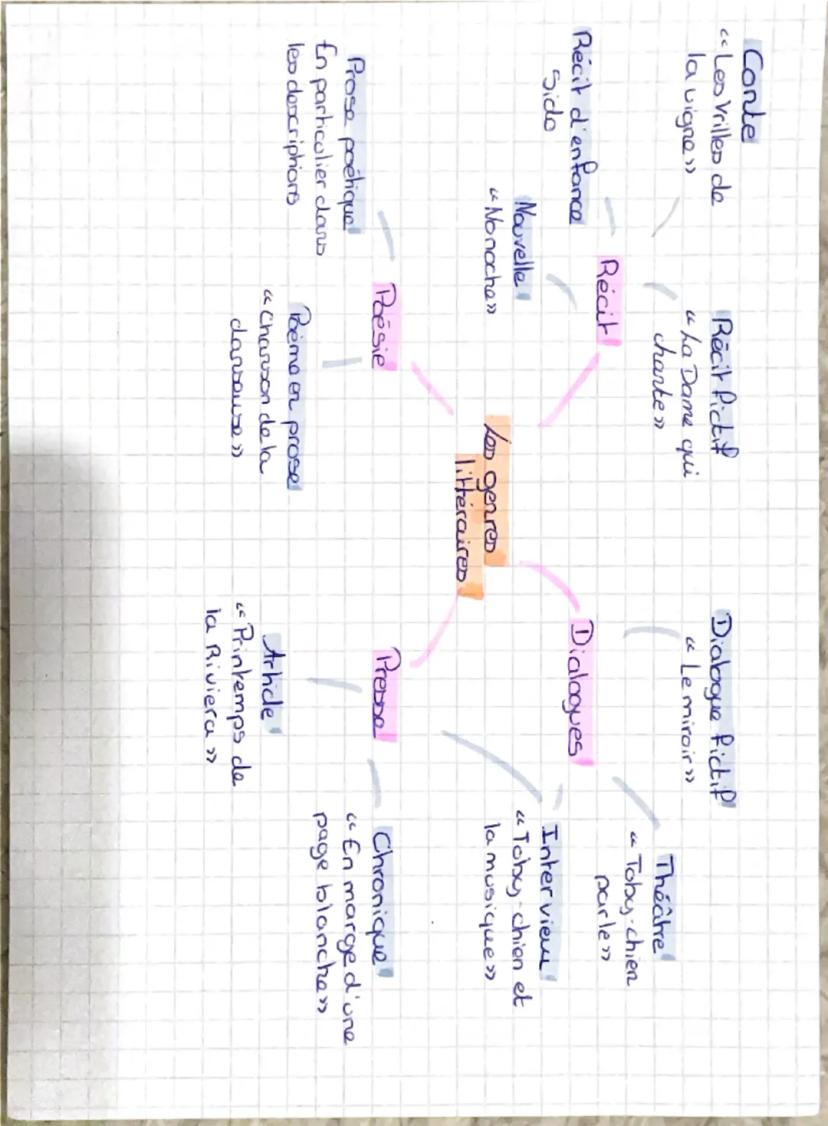 Conte
“Les Vrilles de
la vigne”
Récit fictif
“La Dame qui
chante”
Récit d'enfance
Sido
Nouvelle
“Nonoche”
Récit
Dialogue fictif
“Le miroir”
Théâtre
“Toby-chien
parle”
Dialogues
Interview
“Toby-chien et
la musique”
Les genres
littéraires
Prose poétique
En particulier dans
les descriptions
Poésie
Poème en prose
“Chanson de la
danseuse”
Presse
Article
“Printemps de
la Riviera”
Chronique
“En marge d'une
page blanche”